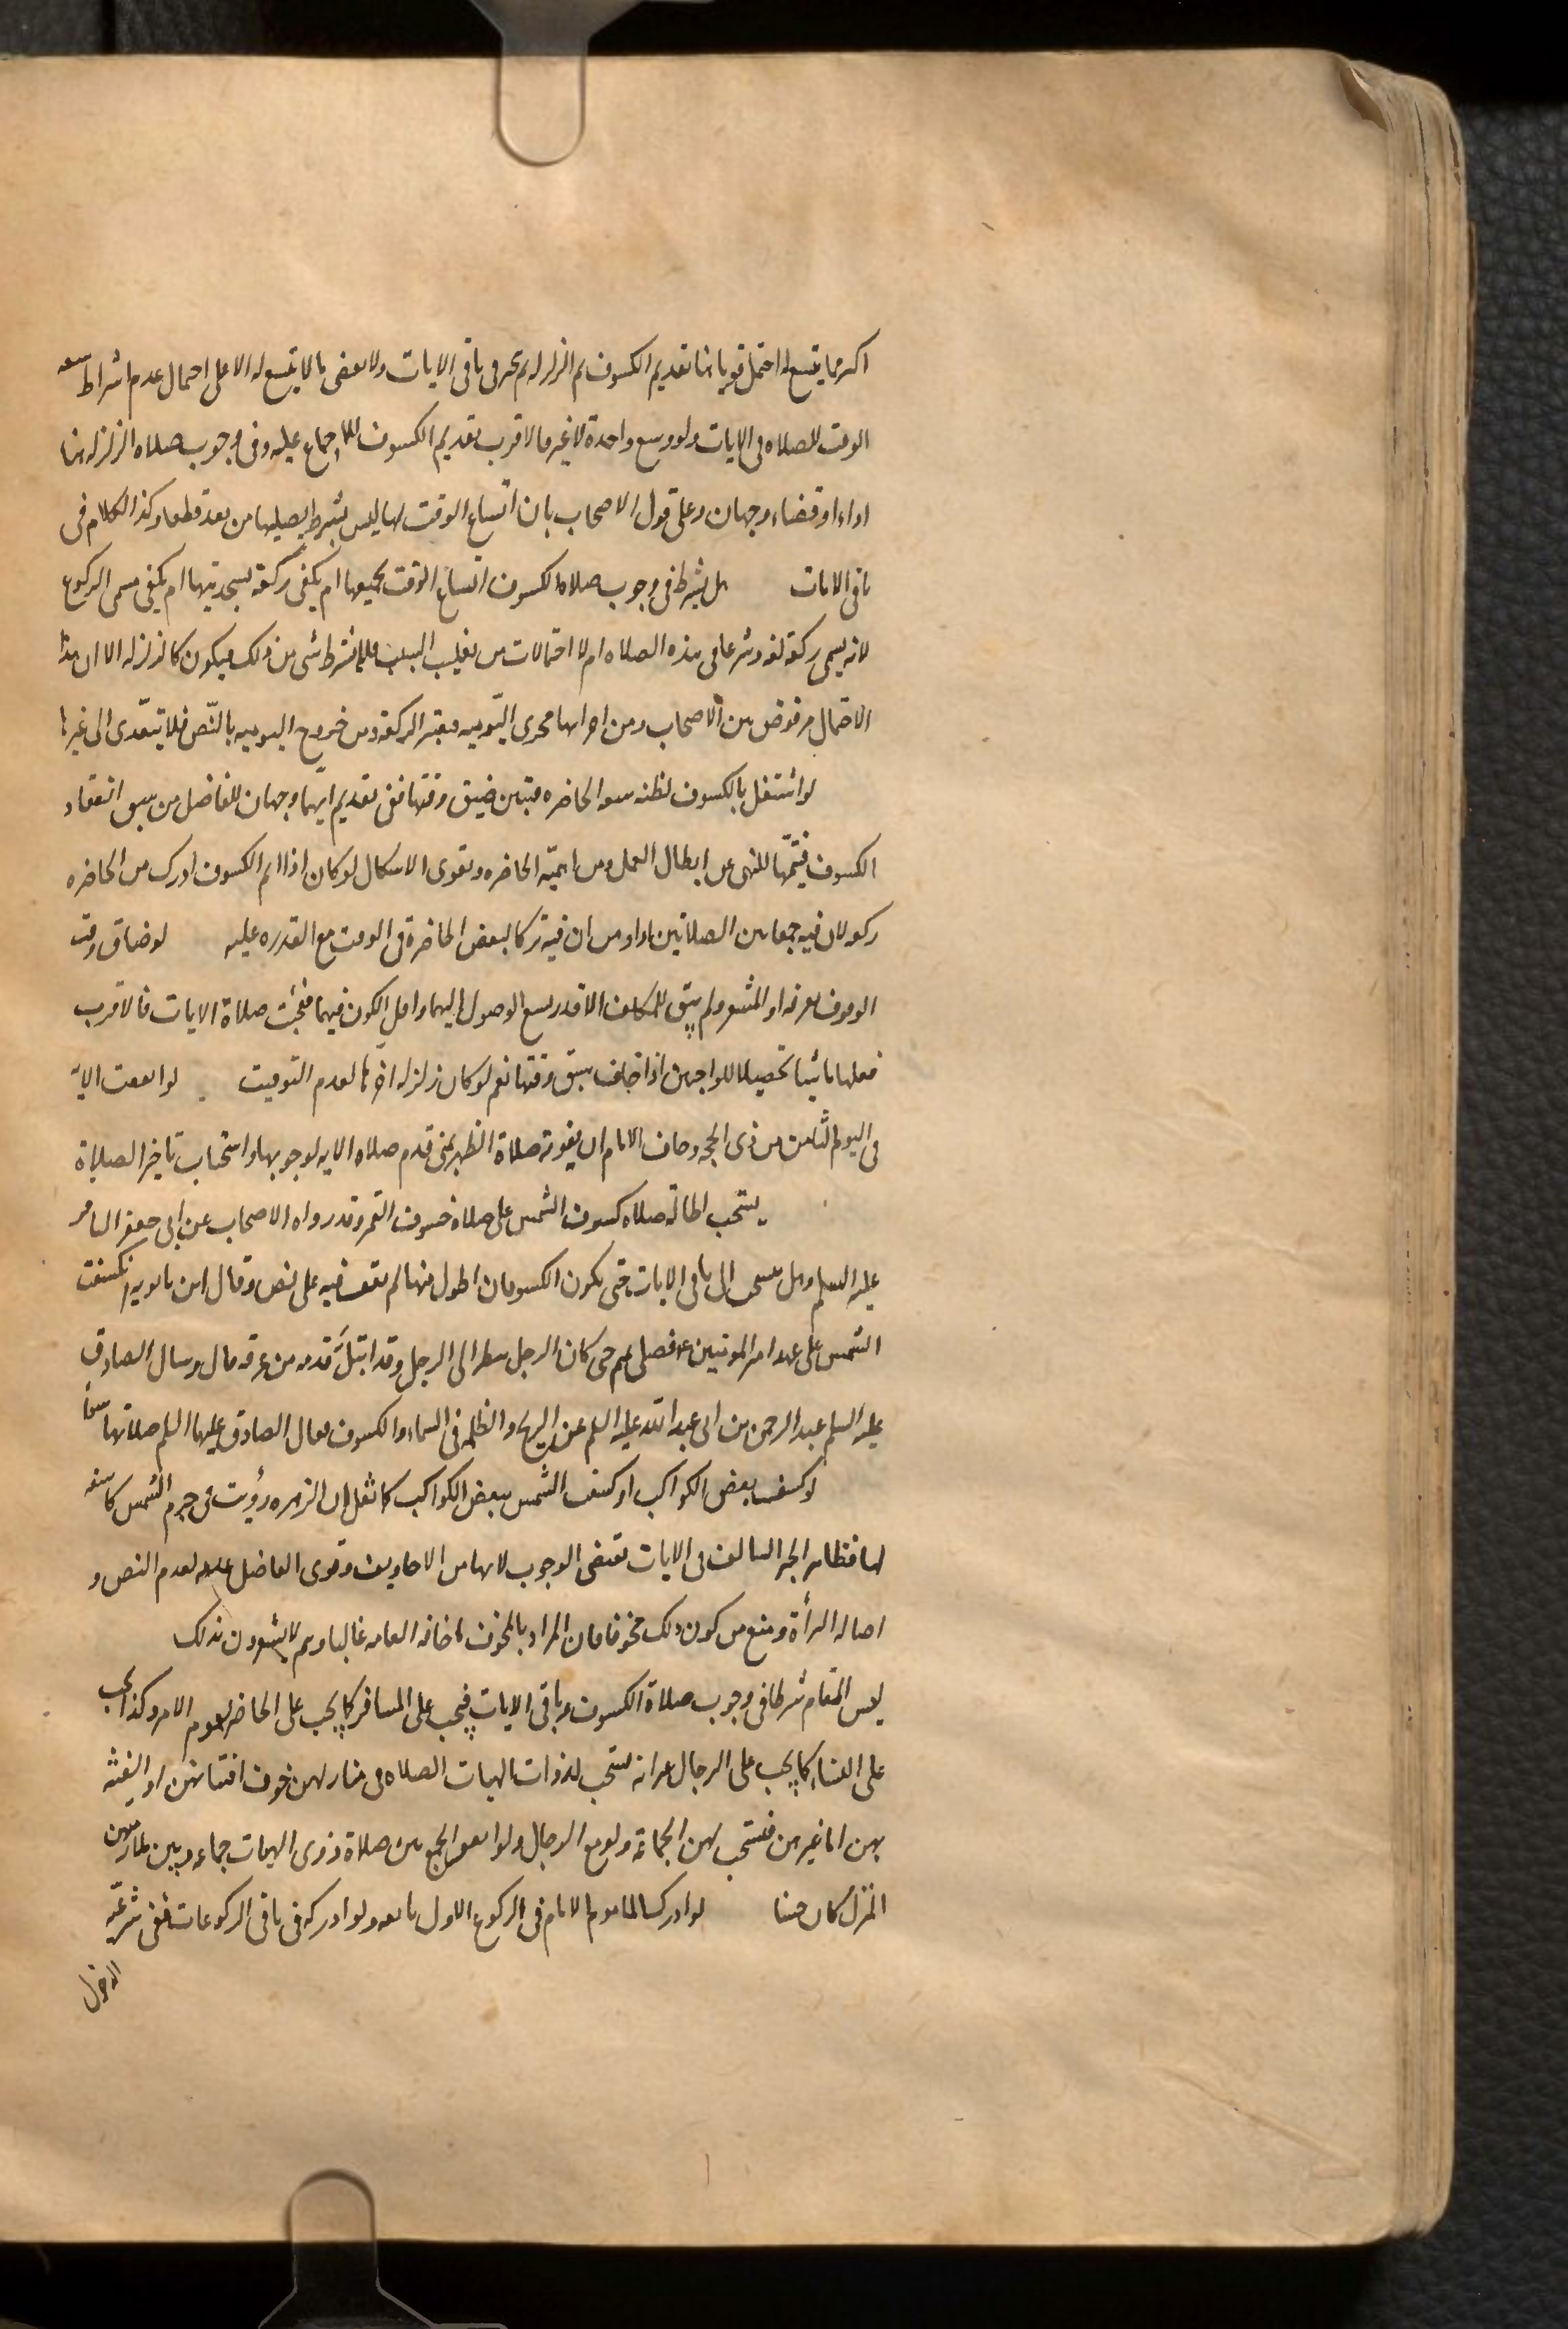 اكثر مما يتسع له احتمل قويا هنا تقديم الكسوف ثم الزلزله ثم يتخير فى باقى الايات ولا يقضى ما لا يتسع له الا على احتمال عدم اشراط سعه
الوقت للصلاه فى الايات ولو وسع واحدة لا غير فالاقرب تقديم الكسوف للاجماع عليه وفى وجوب صلاه الزلزله هنا
اداء او قضاء وجهان وعلى قول الاصحاب بان اتساع الوقت لها ليس بشرط يصليها من بعد قطعا وكذا الكلام فى
باقى الايات هل يشترط فى وجوب صلاه الكسوف اتساع الوقت لجميعها ام يكفى ركعة بسجدتيها ام يكفى مسمى الركوع
لانه يسمى ركعة لغة وشرعا فى هذه الصلاه ام لا احتمالات من تغليب السبب فلا يشترط شى من ذلك فيكون كالزلزله الا ان هذا
الاحتمال مرفوض بين الاصحاب ومن اجرائها مجرى اليوميه فيعتبر الركعة ومن خروج اليوميه بالنص فلا يتعدى الى غيرها
لو اشتغل بالكسوف لظنه سعه الحاضره فتبين ضيق وقتها ففى تقديم ايهما وجهان للفاضل من سبق انعقاد
الكسوف فيتمها للنهى عن ابطال العمل ومن اهمية الحاضره ويقوى الاشكال لو كان اذا اتم الكسوف ادرك من الحاضره
ركعة لان فيه جمعا بين الصلاتين اداء ومن ان فيه تركا لبعض الحاضرة فى الوقت مع القدره عليه لو ضاق وقت
الوقوف بعرفه او المشعر ولم يبق للمكلف الا قدر يسع الوصول اليهما واقل الكون فيهما فلحقت صلاة الايات فالاقرب
فعلها ماشيا تحصيلا للواجبين اذا خاف سبق وقتها نعم لو كان زلزله اخرها لعدم التوقيت لو اتفقت الاية
فى اليوم الثامن من ذى الحجه وخاف الامام ان يفوته صلاة الظهر بمنى قدم صلاه الايه لوجوبها واستحباب تاخير الصلاة
يستحب اطالة صلاه كسوف الشمس على صلاة خسوف القمر وقد رواه الاصحاب عن ابى جعفر الباقر
عليه السلم وهل ينسحب الى باقى الايات حتى يكون الكسوفان اطول منها لم نقف فيه على نص وقال ابن بابويه انكسفت
الشمس على عهد امير المومنين ع فصلى بهم حتى كان الرجل ينظر الى الرجل وقد ابتل قدمه من عرقه قال وسال الصادق
عليه السلم عبد الرحمن بن ابى عبد الله عليه السلم عن الريح والظلمه فى السماء والكسوف فقال الصادق عليه السلم صلاتهما سواء
لو كسف بعض الكواكب او كسفت الشمس ببعض الكواكب كما نقل ان الزهره رؤيت فى جرم الشمس كاسفه
لها فظاهر الخبر السالف فى الايات يقتضى الوجوب لانها من الاخاويف وقوى الفاضل عدمه لعدم النص و
اصاله البرأة ومنع من كون ذلك مخوفا فان المراد بالمخوف ما خافه العامه غالبا وهم لا يشعرون بذلك
ليس المقام شرطا فى وجوب صلاة الكسوف وباقى الايات فيجب على المسافر كما يجب على الحاضر لعموم الامر وكذا يجب
على النساء كما يجب على الرجال غير انه يستحب لذوات الهيات الصلاه فى منازلهن لخوف افتتانهن او الفتنه
بهن اما غيرهن فيستحب لهن الجماعة ولو مع الرجال ولو اتفق الجمع بين صلاة ذوى الهيات جماعه وبين ملازمتهن
المنزل كان حسنا لو ادرك الماموم الامام فى الركوع الاول تابعه ولو ادركه فى باقى الركوعات ففى شرعية
الدخول